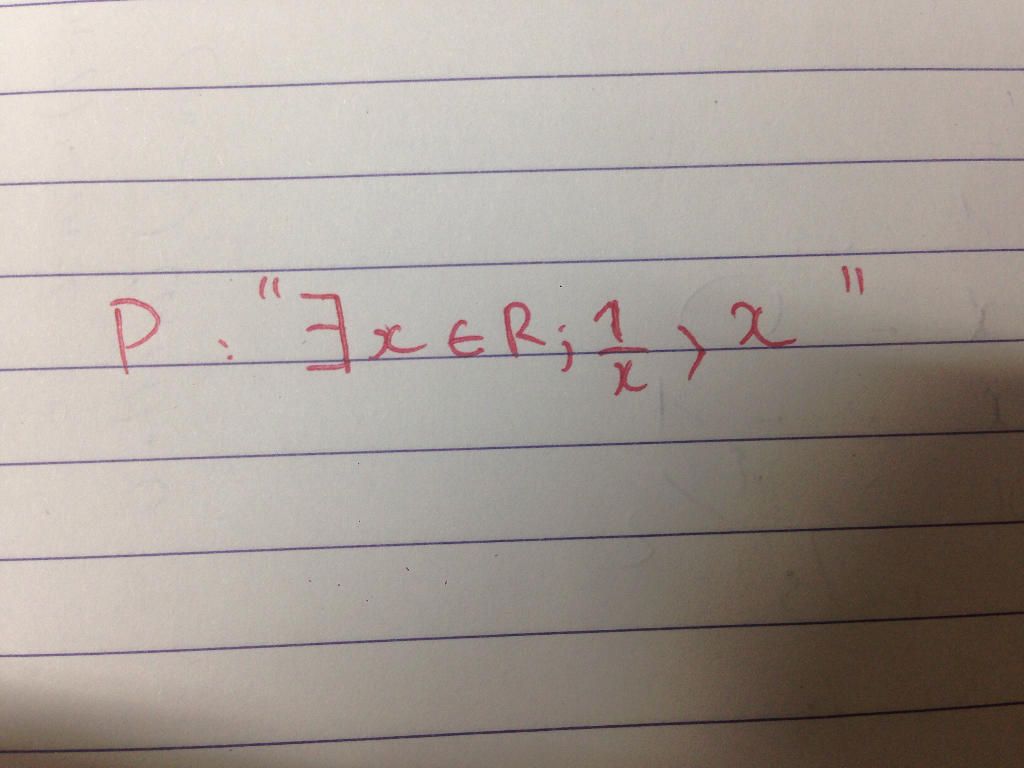 P : "∃ x ∈ R ; 1/x > x "